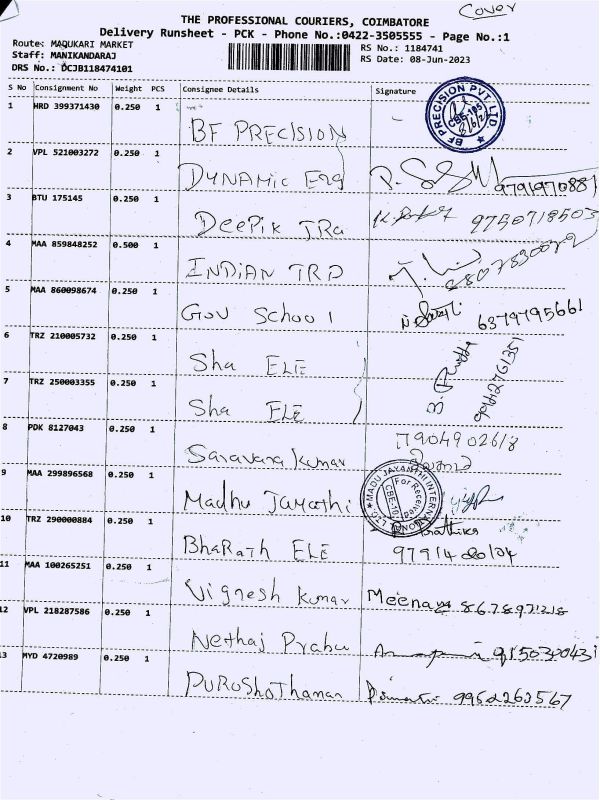 Cover
THE PROFESSIONAL COURIERS, COIMBATORE
Delivery Runsheet - PCK - Phone No.:0422-3505555 - Page No.:1
Route: MAQUKARI MARKET
RS No.: 1184741
Staff: MANIKANDARAJ
RS Date: 08-Jun-2023
DRS No.: DCJB118474101
S No Consignment No Weight PCS Consignee Details Signature
1 HRD 399371430 0.250 1 BF PRECISION
BF PRECISION PVT. LTD. CBE-105
2 VPL 521003272 0.250 1 DYNAMIC Eng 9791970881
3 BTU 175145 0.250 1 DeePik TRa 9750718503
4 MAA 859848252 0.500 1 INDIAN TRD
5 MAA 860098674 0.250 1 GOV SchooL 6379795661
6 TRZ 210005732 0.250 1 Sha ELE
7 TRZ 250003355 0.250 1 Sha ELE
8 PDK 8127043 0.250 1 Saravana Kumar 7904902618
9 MAA 299896568 0.250 1 Madhu Jayanthi
MADU JAYANTHI INTERNATIONAL For Received
10 TRZ 290000884 0.250 1 BhaRath ELE
11 MAA 100265251 0.250 1 Vignesh Kumar Meena 8678971218
12 VPL 218287586 0.250 1 Nethaj Prabu 9150300431
13 MYD 4720989 0.250 1 PURushoThaman 9952263567